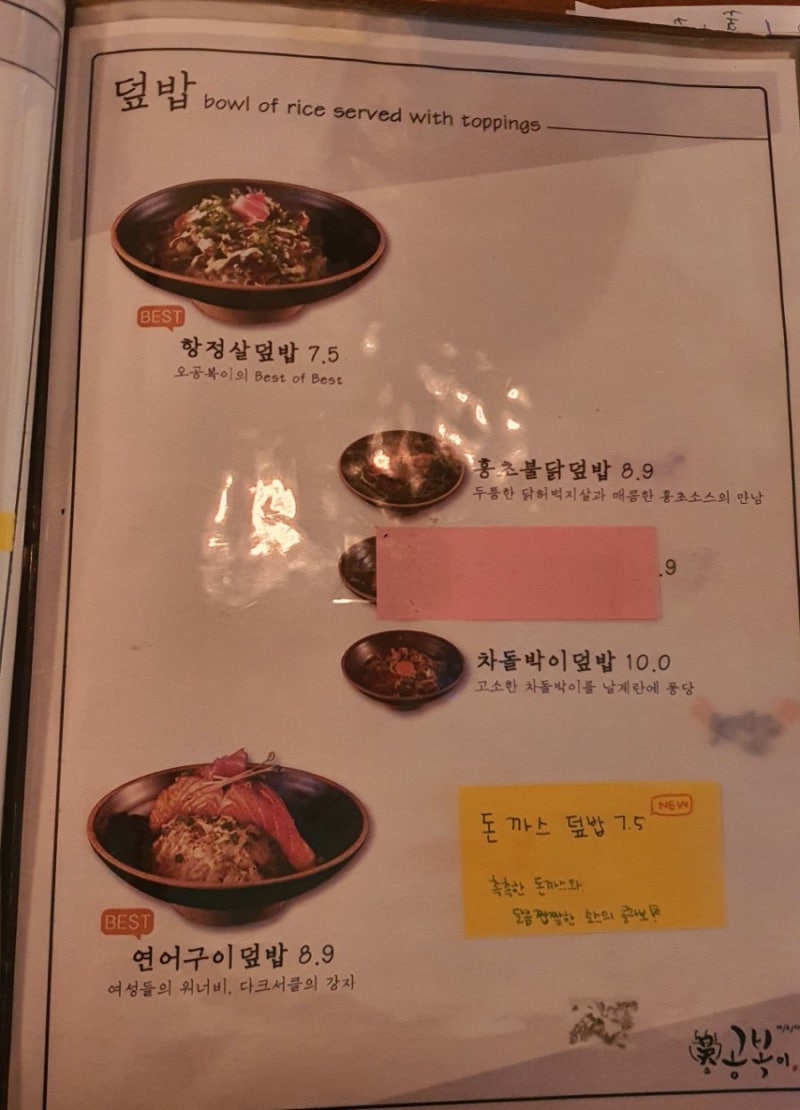 덮밥 bowl of rice served with toppings
BEST
항정살덮밥 7.5
오공복이의 Best of Best
홍초불닭덮밥 8.9
두툼한 닭허벅지살과 매콤한 홍초소스의 만남
.9
차돌박이덮밥 10.0
고소한 차돌박이를 날계란에 퐁당
돈까스 덮밥 7.5 NEW
촉촉한 돈까스와
달콤짭짤한 소스의 콜라보!
BEST
연어구이덮밥 8.9
여성들의 워너비, 다크서클의 강자
공복이